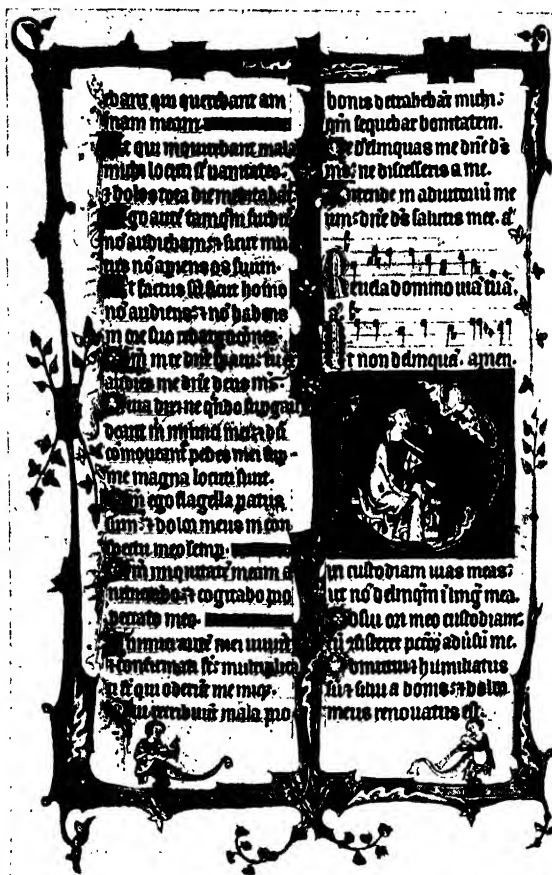 ebant qui querebant am
mam meam.
t qui inquirebant mala
michi locuti st vanitates:
⁊ dolos tota die meditabāt
go autē tamqm surdus
nō audiebam: ⁊ sicut mu
tus nō apiens os suum.
t factus sū sicut homo
nō audiens: ⁊ nō habens
in ore suo
audies me dne deus ms.
ne qndo supgau
deant in inimici mei: ⁊ dū
comoveant pedes mei sup
me magna locuti sunt.
m ego flagella patus
sum: ⁊ dolor meus in con
spectu meo semp.
m iniquitatē meam a
nuntiabo: ⁊ cogitabo pro
peccato meo.
nimici autē mei vivunt
⁊ confirmati st: multiplica
ti st qui oderūt me
retribuūt mala pro
bonis detrahebāt michi:
qm sequebar bonitatem.
e delinquas me dne ds
ms: ne discesseris a me.
ntende in adiutoriū me
um: dne ds salutis mee.
evela domino viā tuā.
t non delinquā. amen.
in custodiam vias meas:
ut nō delinqm i lingua mea.
osui ori meo custodiam:
cū sisteret pctor adūsū me.
bmutui ⁊ humiliatus
sū ⁊ silui a bonis: ⁊ dolor
meus renovatus est.